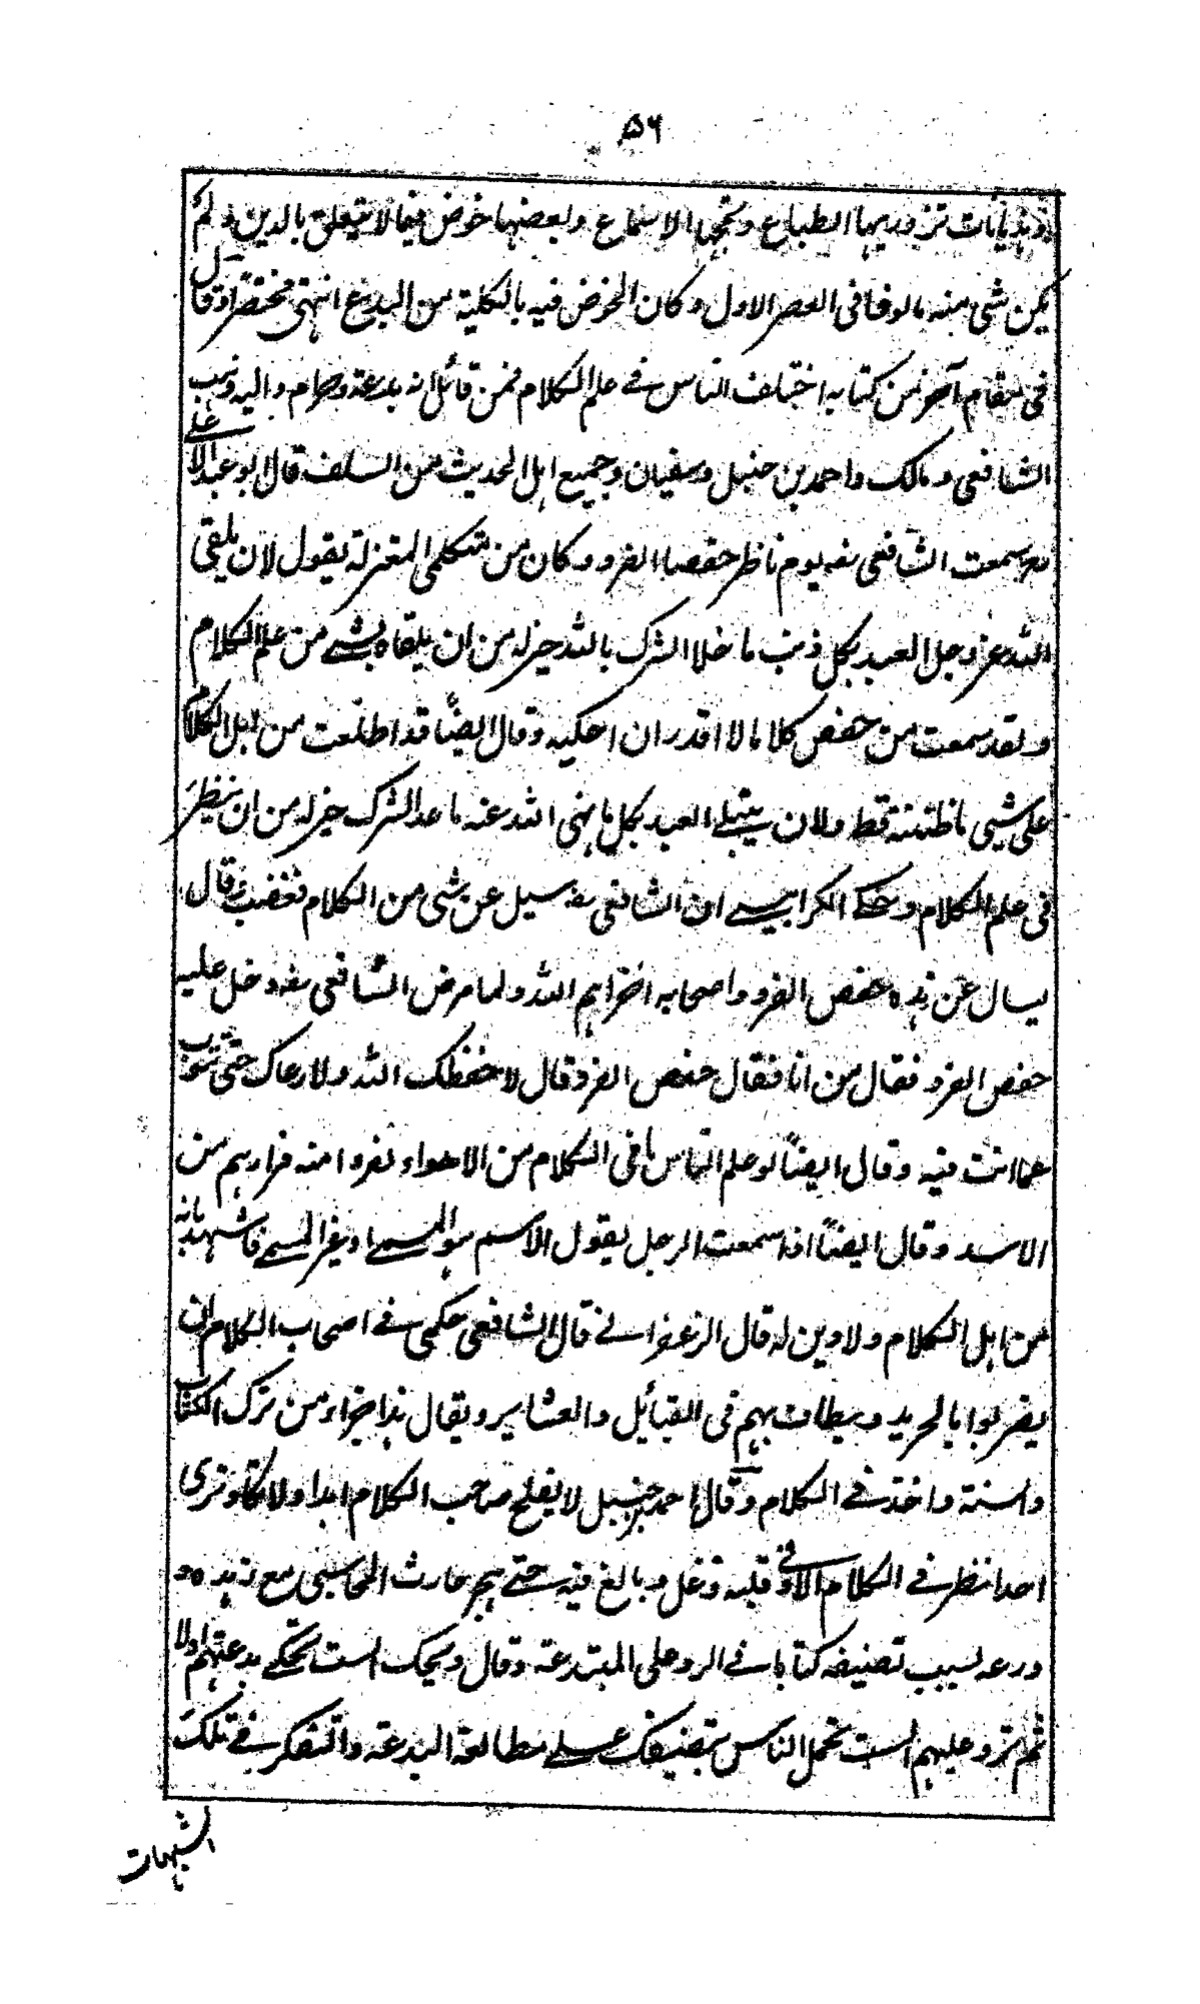 ۵۶
وهذيانات تزدريها الطباع وتمجها الاسماع وبعضها خوض فيما لا يتعلق بالدين ولم
يكن شي منه مالوفا في العصر الاول وكان الخوض فيه بالكلية من البدع انتهى مختصرا وقال
في مقام آخر من كتابه اختلف الناس في علم الكلام فمن قائل انه بدعة وحرام واليه ذهب
الشافعي ومالك واحمد بن حنبل وسفيان وجميع اهل الحديث من السلف قال ابو عبد الاعلى
سمعت الشافعي يوم ناظر حفصا الفرد وكان من متكلمي المعتزلة يقول لان يلقى
الله عز وجل العبد بكل ذنب ما خلا الشرك بالله خير له من ان يلقاه بشي من علم الكلام
ولقد سمعت من حفص كلاما لا اقدر ان احكيه وقال ايضًا قد اطلعت من اهل الكلام
على شي ما ظننته قط ولان يبتلى العبد بكل ما نهى الله عنه ما عدا الشرك خير له من ان ينظر
في علم الكلام وحكى الكرابيسي ان الشافعي سئل عن شي من الكلام فغضب وقال
يسال عن هذه حفص الفرد واصحابه اخزاهم الله ولما مرض الشافعي دخل عليه
حفص الفرد فقال من انا فقال حفص الفرد قال لا حفظك الله ولا رعاك حتى تتوب
عما انت فيه وقال ايضًا لو علم الناس ما في الكلام من الاهواء لفروا منه فرارهم من
الاسد وقال ايضًا اذا سمعت الرجل يقول الاسم هو المسمى او غير المسمى فاشهد بانه
من اهل الكلام ولا دين له قال الزعفراني قال الشافعي حكمي في اصحاب الكلام ان
يضربوا بالجريد ويطاف بهم في القبائل والعشاير ويقال هذا جزاء من ترك الكتاب
والسنة واخذ في الكلام وقال احمد بن حنبل لا يفلح صاحب الكلام ابدا ولا تكاد ترى
احدا نظر في الكلام الا وفي قلبه دغل وبالغ فيه حتى هجر حارث المحاسبي مع زهده و
ورعه بسبب تصنيفه كتابا في الرد على المبتدعة وقال ويحك الست تحكي بدعتهم اولا
ثم ترد عليهم الست تحمل الناس بتصنيفك على مطالعة البدعة والتفكر في تلك
الشبهات